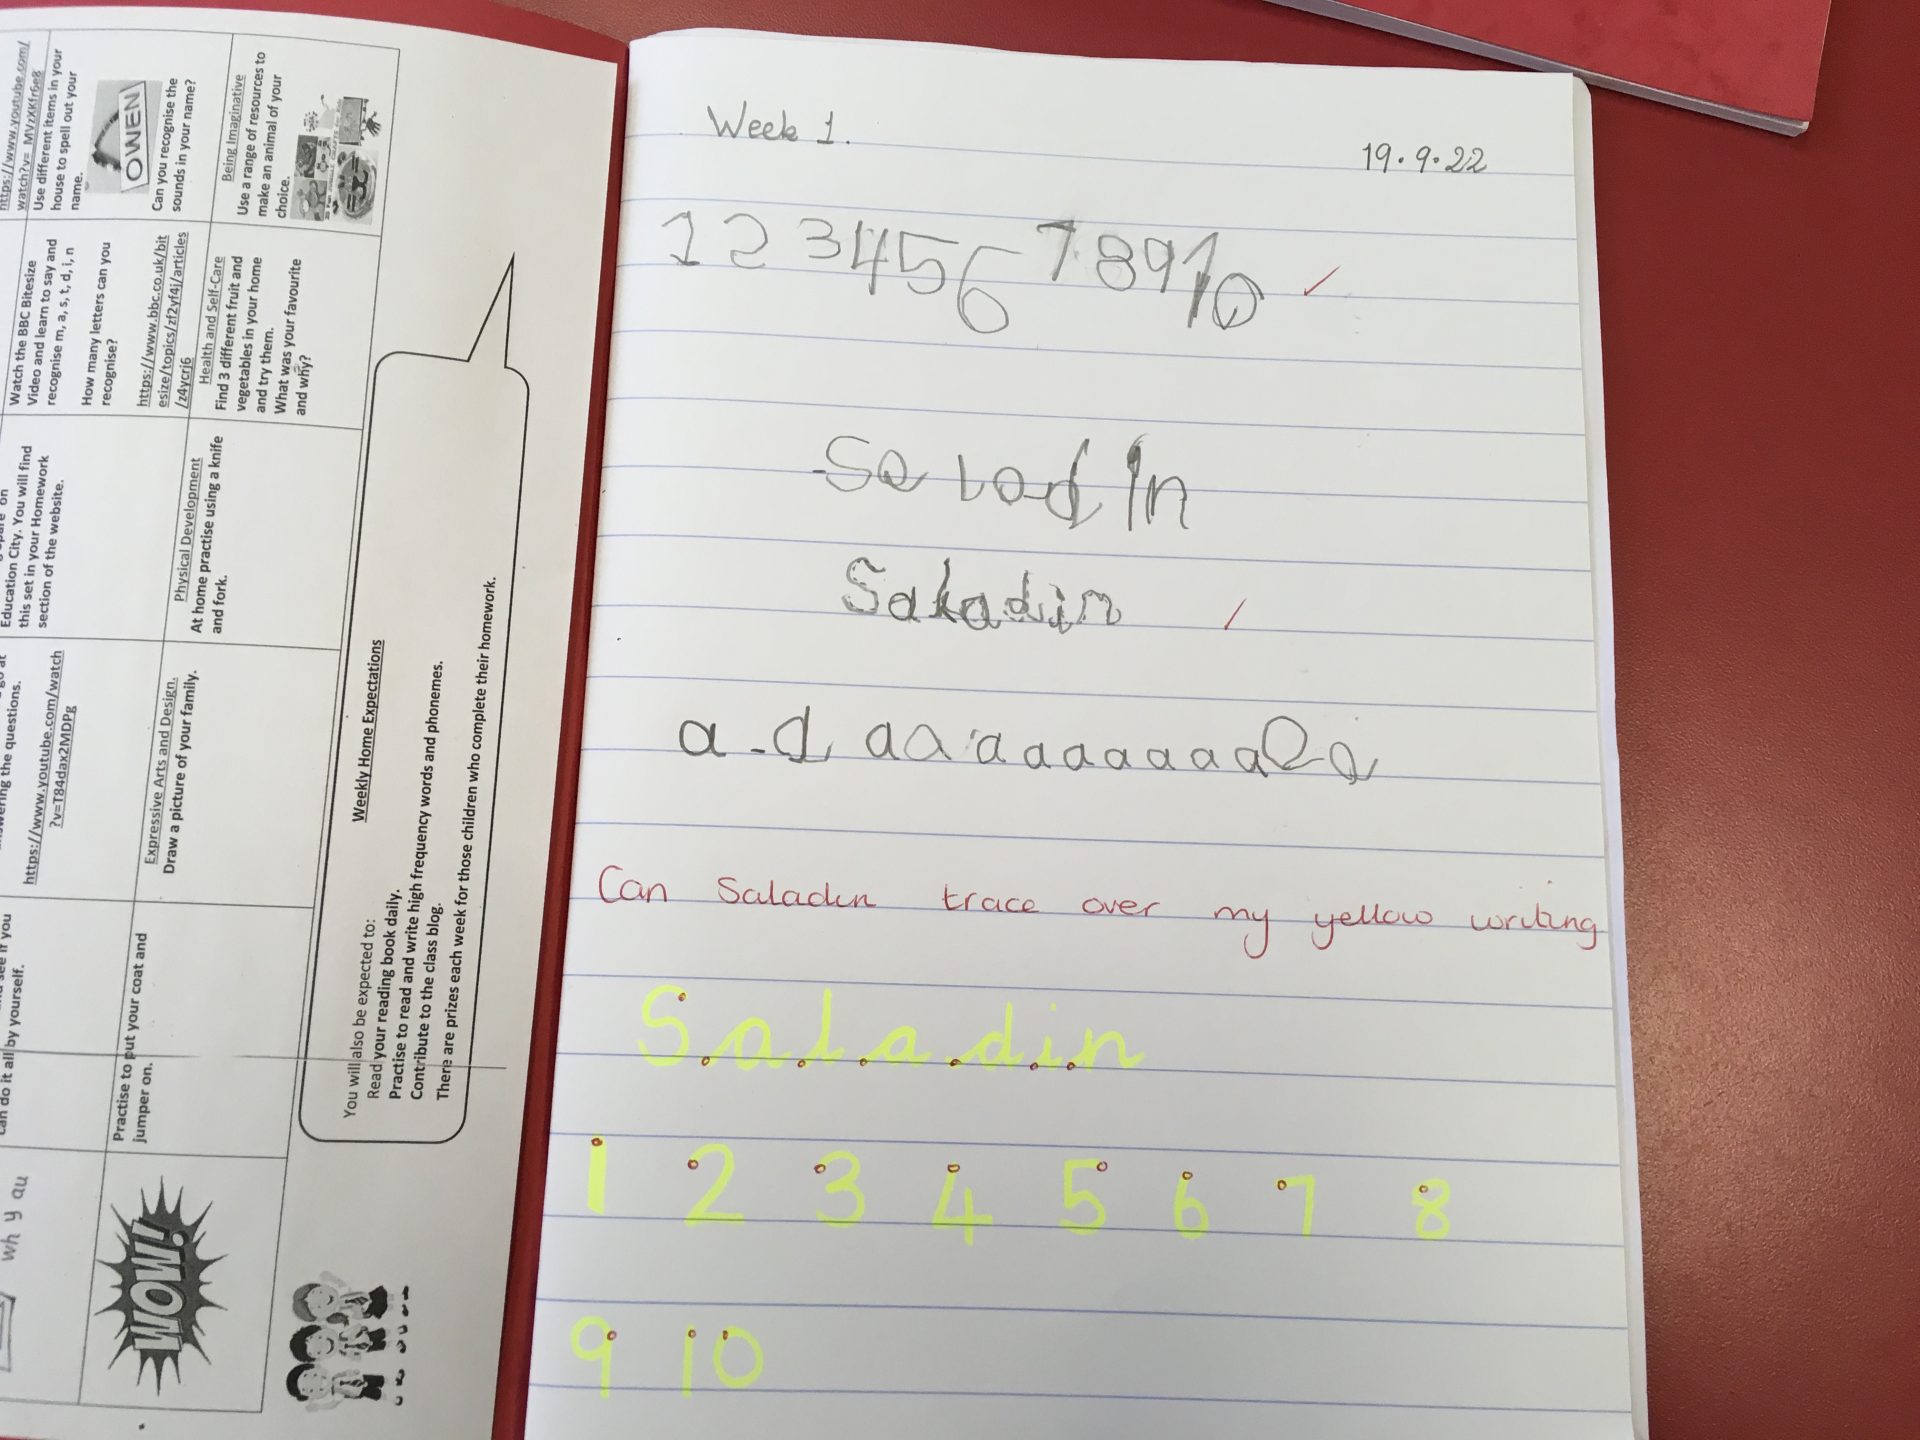 https://www.youtube.com/
watch?v=_MVzXKfr6e8
Use different items in your
house to spell out your
name.
OWEN
Can you recognise the
sounds in your name?
Being Imaginative
Use a range of resources to
make an animal of your
choice.
Watch the BBC Bitesize
Video and learn to say and
recognise m, a, s, t, d, i, n
How many letters can you
recognise?
https://www.bbc.co.uk/bit
esize/topics/zf2yf4j/articles
/z4ycrj6
Health and Self-Care
Find 3 different fruit and
vegetables in your home
and try them.
What was your favourite
and why?
on
Education City. You will find
this set in your Homework
section of the website.
Physical Development
At home practise using a knife
and fork.
answering the questions.
https://www.youtube.com/watch
?v=T84dax2MDPg
Expressive Arts and Design.
Draw a picture of your family.
see if you
can do it all by yourself.
Practise to put your coat and
jumper on.
wh y au
WOW!
Weekly Home Expectations
You will also be expected to:
Read your reading book daily.
Practise to read and write high frequency words and phonemes.
Contribute to the class blog.
There are prizes each week for those children who complete their homework.
Week 1.
19.9.22
1 2 3 4 5 6 7 8 9 10
Saladin
Saladin
a d a a a a a a a a a a a
Can Saladin trace over my yellow writing
Saladin
1 2 3 4 5 6 7 8
9 10